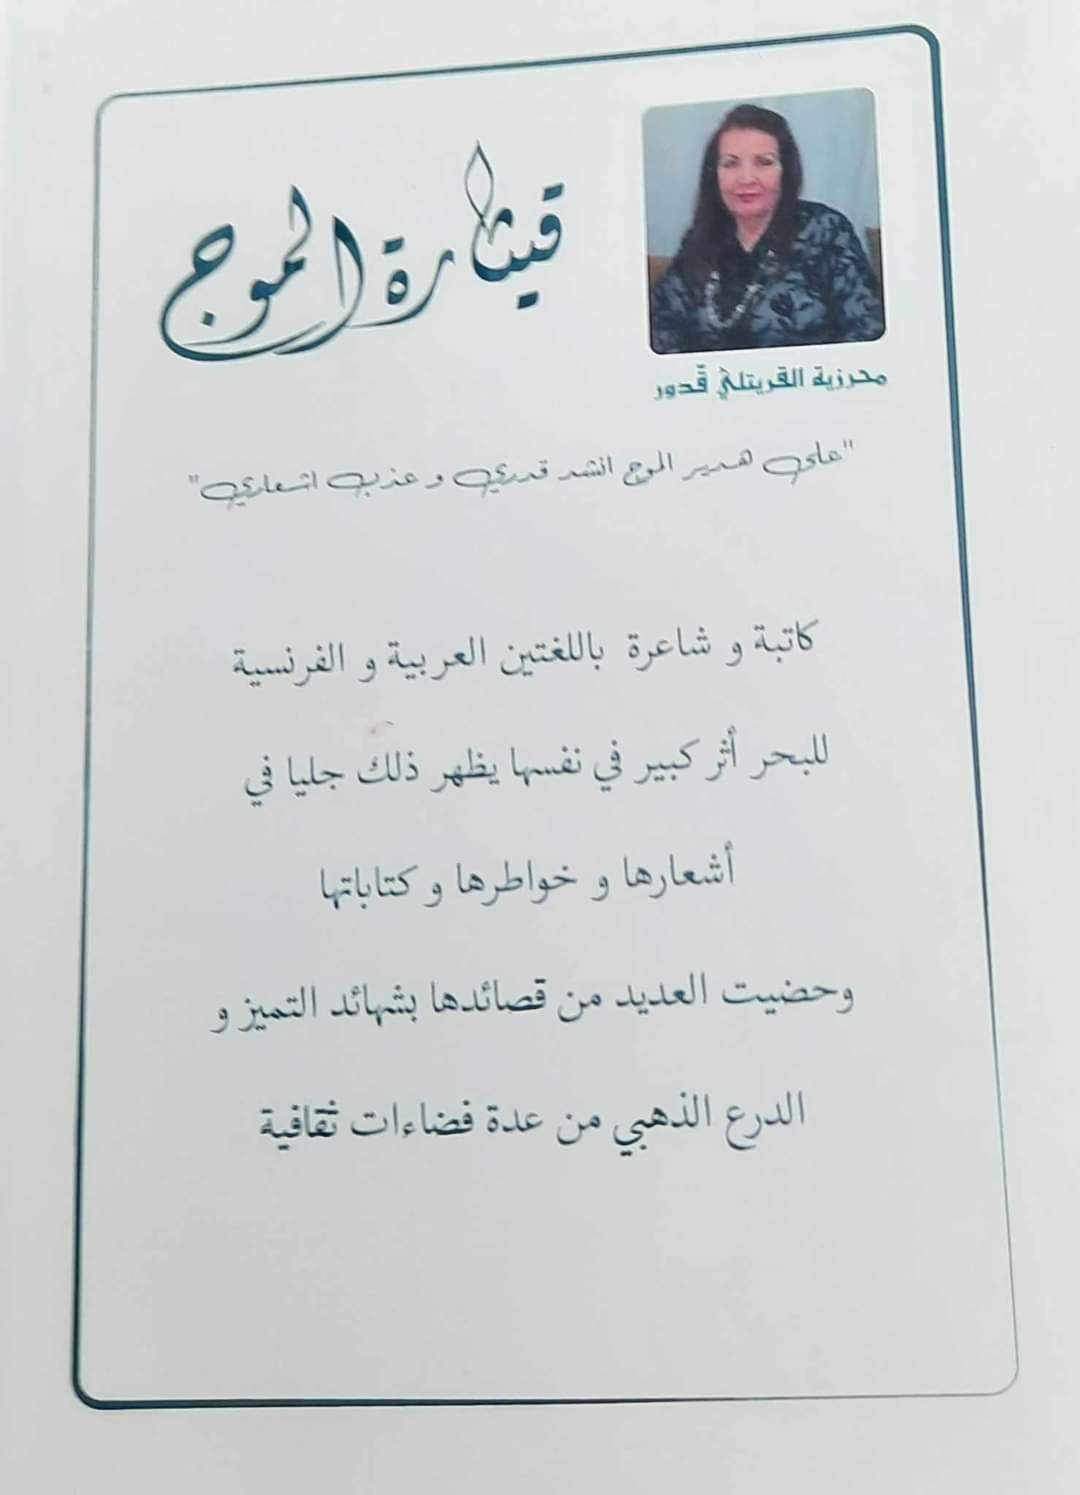 قيثارة الموج
محرزية القريتلي قّدور
"على هدير الموج انشد قدري و عذب اشعاري"
كاتبة و شاعرة باللغتين العربية و الفرنسية
للبحر أثر كبير في نفسها يظهر ذلك جليا في
أشعارها و خواطرها و كتاباتها
وحضيت العديد من قصائدها بشهائد التميز و
الدرع الذهبي من عدة فضاءات ثقافية